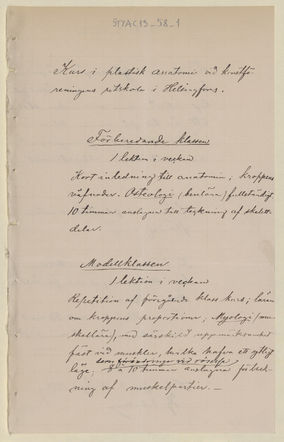 STYAC13_58_1
Kurs i plastisk anatomi vid konstfö-
reningens ritskola i Helsingfors.
Förberedande klassen
1 lektion i veckan
Kort inledning till anatomin; kroppens
väfnader. Osteologi (benlära) fullständigt
10 timmar anslagna till teckning af skelett-
delar.
Modellklassen
1 lektion i veckan
Repetition af föregående klass kurs; läran
om kroppens proportioner, Myologi (mu-
skellära), med särskild uppmärksamhet
fäst vid muskler, hvilka hafva ett ytligt
läge; 10 timmar anslagna för teck-
ning af muskelpartier. —